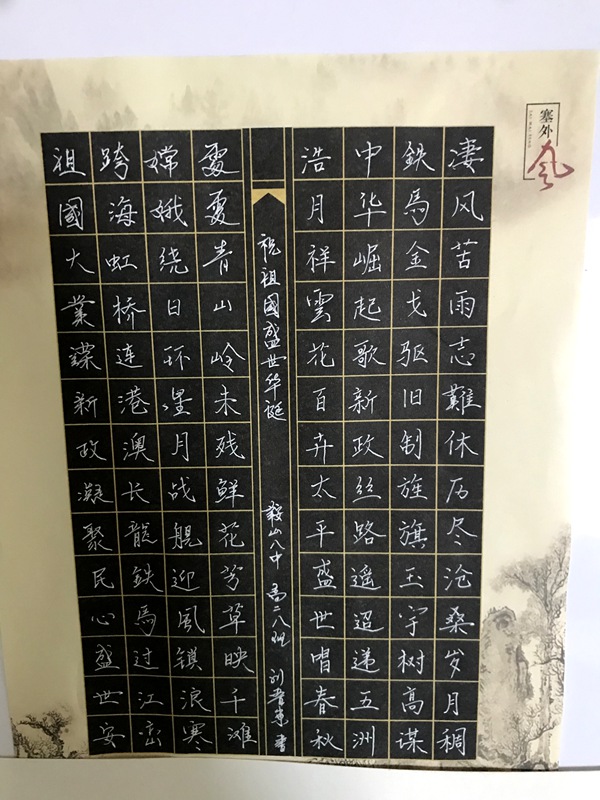 塞外
风
凄风苦雨志難休历尽沧桑岁月稠
鉄馬金戈驱旧制旌旗玉宇树高谋
中华崛起歌新政絲路遥迢递五洲
浩月祥雲花百卉太平盛世唱春秋
祝祖國盛世华挺 鞍山八中 高二八班 刘書
處處青山岭未残鲜花芳草映千滩
嫦娥绕日环星月战舰迎風鎖浪寒
跨海虹桥连港澳长龍鉄馬过江峦
祖國大業新政凝聚民心盛世安